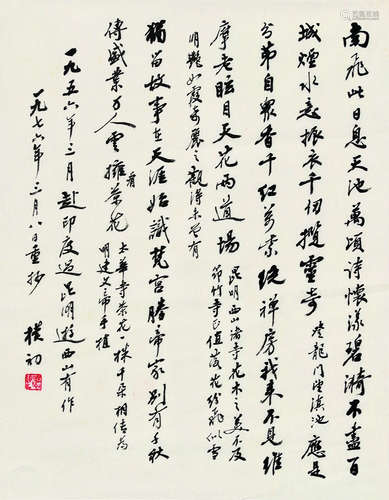 南飛此日息天池萬頃詩懷漾碧漪不盡百
城煙水意振衣千仞攬靈奇 登龍門望滇池 應是
分 自眾香千紅萬紫繞禪房我来不見維
摩老眩目天花雨道場 昆明西山諸寺花木之美不及
筇竹寺正值落花纷飛似雪
明艷如霞奇麗之觀得未曾有
獨留故事在天涯始識梵宮勝帝家別有千秋
傳盛業万人雲擁看茶花 太華寺茶花一株千朵相传為
明建文帝手植
一九五六年三月赴印度過昆明遊西山有作
一九七六年三月八日重抄 樸初